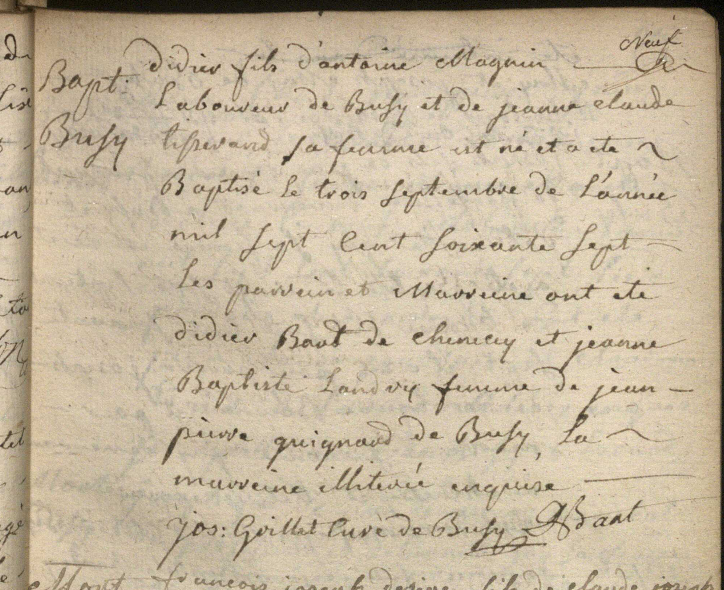 Neuf
Bapt.
Busy
didier fils d'antoine Magnin
Laboureur de Busy et de jeanne claude
tisserand sa femme est né et a ete
Baptisé le trois septembre de L'année
mil sept Cent soixante sept
Les parrein et Marreine ont ete
didier Bart de chenecey et jeanne
Baptiste Landry femme de jean
pierre guignard de Busy, La
marreine illiterée enquise
jos: Goillat Curé de Busy DBart
Mort françois joseph fils de claude joseph